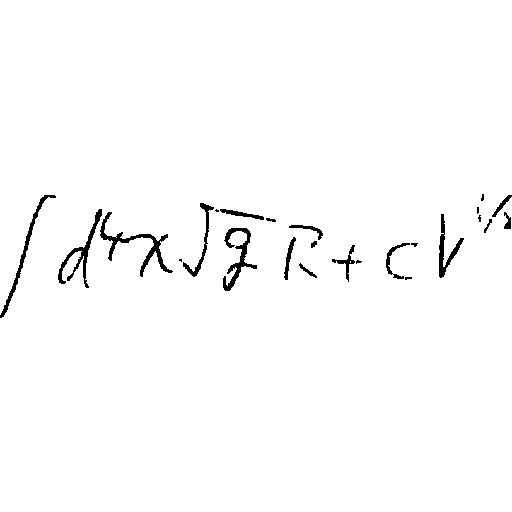 ∫ d⁴x √g R + c V^{1/2}